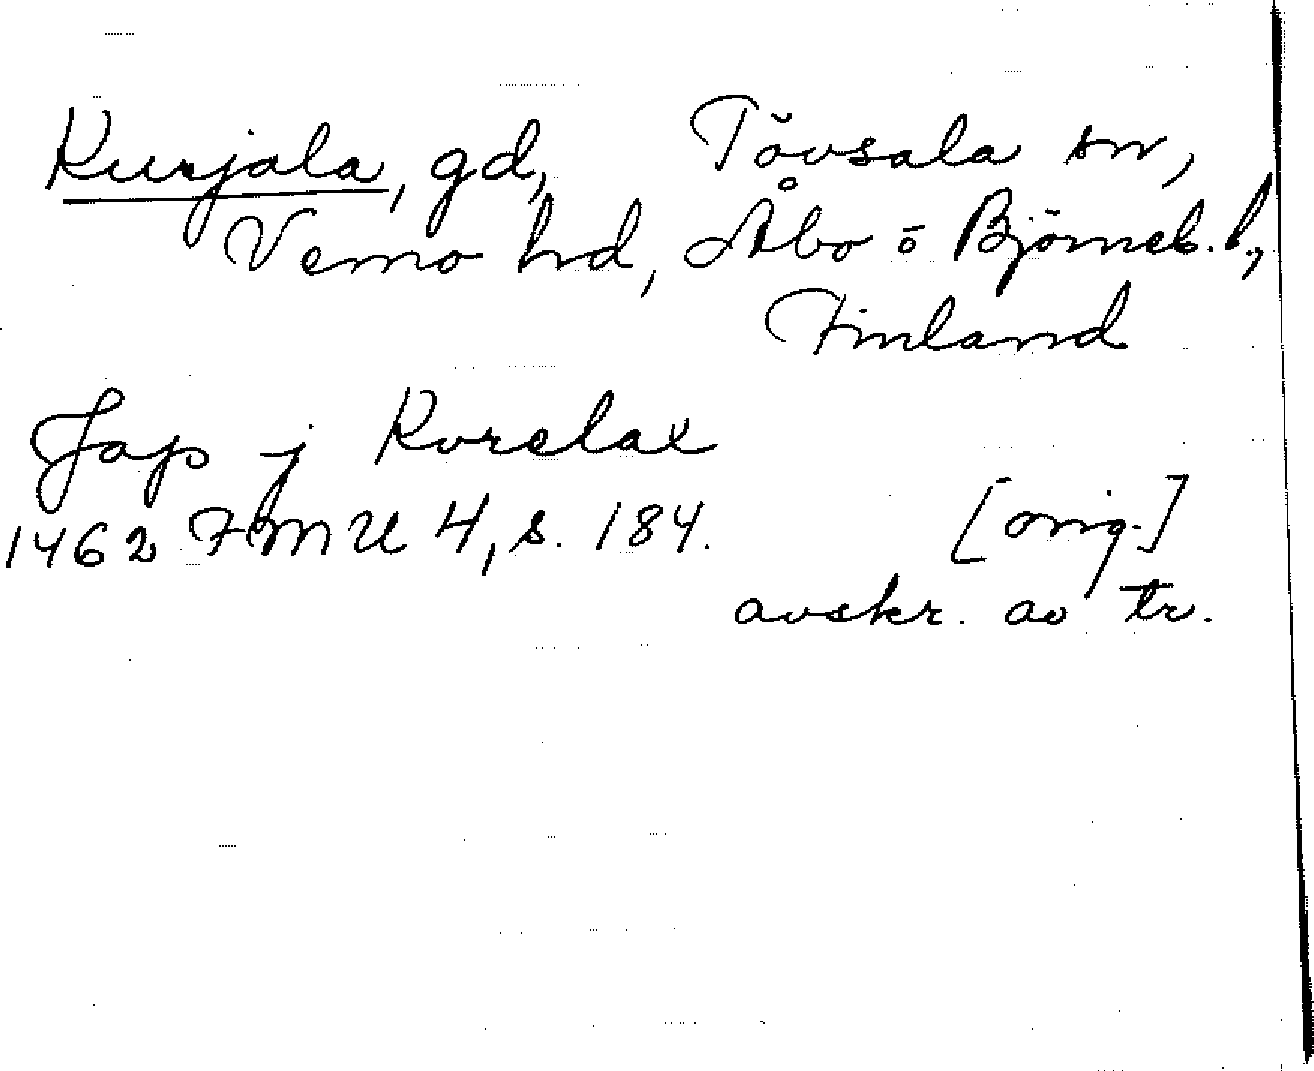 Kurjala, gd, Tövsala sn,
Vemo hd, Åbo o Björneb. l,
Finland
Jap j Korelax
1462 FMU 4, s. 184. [orig.]
avskr. av tr.